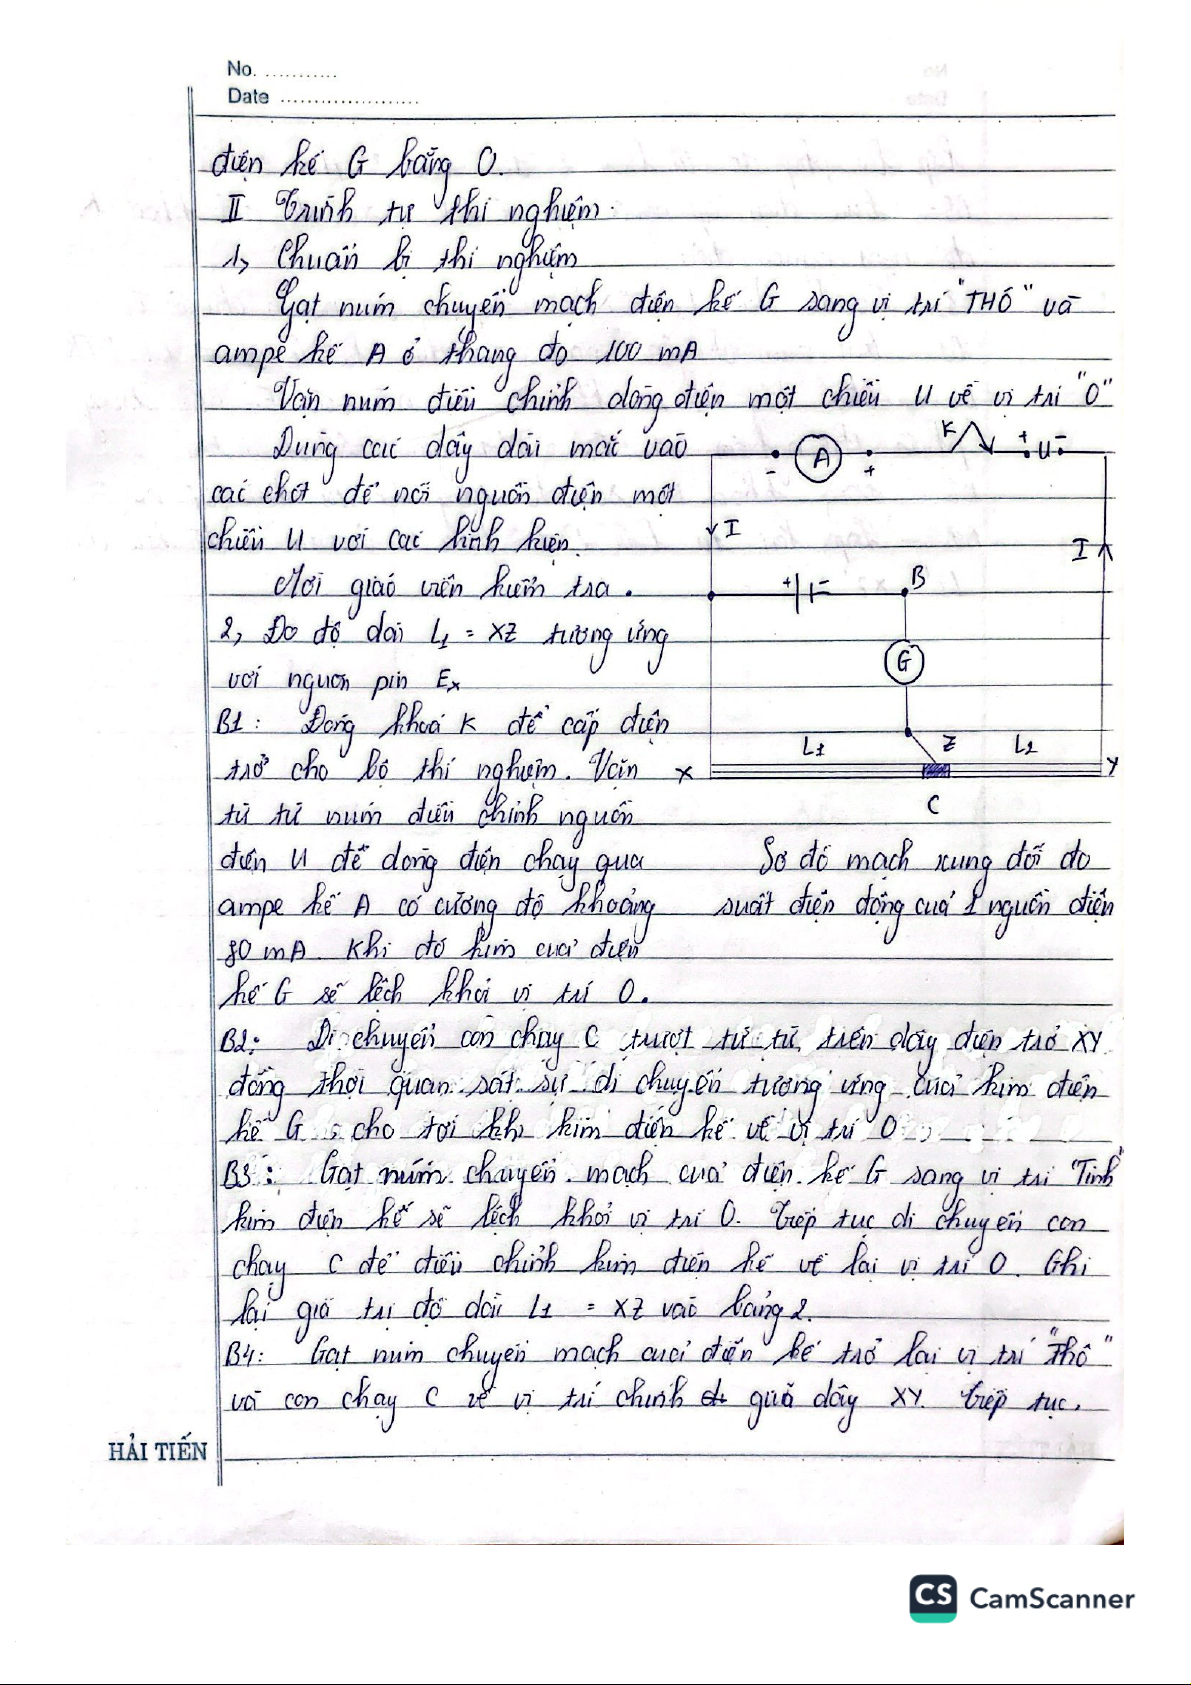 No. ...........
Date .....................
điện kế G bằng 0.
II Trình tự thí nghiệm.
1, Chuẩn bị thí nghiệm
Gạt núm chuyển mạch điện kế G sang vị trí "THÔ" và
ampe kế A ở thang đo 100 mA
Vặn núm điều chỉnh dòng điện một chiều U về vị trí "0"
Dùng các dây dài mắc vào
các chốt để nối nguồn điện một
chiều U với các linh kiện.
Mời giáo viên kiểm tra.
2, Đo độ dài L1 = XZ tương ứng
với nguồn pin Ex
B1: Đóng khoá K để cấp điện
trở cho bộ thí nghiệm. Vặn
từ từ núm điều chỉnh nguồn
điện U để dòng điện chạy qua
ampe kế A có cường độ khoảng
80 mA. Khi đó kim của điện
kế G sẽ lệch khỏi vị trí 0.
K
+ U -
- A +
I
I
+ -
B
G
L1 Z L2
X Y
C
Sơ đồ mạch xung đối đo
suất điện động của 1 nguồn điện
B2: Di chuyển con chạy C trượt từ từ trên dây điện trở XY
đồng thời quan sát sự di chuyển tương ứng của kim điện
kế G, cho tới khi kim điện kế về vị trí 0
B3: Gạt núm chuyển mạch của điện kế G sang vị trí "Tinh"
kim điện kế sẽ lệch khỏi vị trí 0. Tiếp tục di chuyển con
chạy C để điều chỉnh kim điện kế về lại vị trí 0. Ghi
lại giá trị độ dài L1 = XZ vào bảng 2.
B4: Gạt núm chuyển mạch của điện kế trở lại vị trí "Thô"
và con chạy C về vị trí chính giữa dây XY. Tiếp tục,
HẢI TIẾN
CS CamScanner